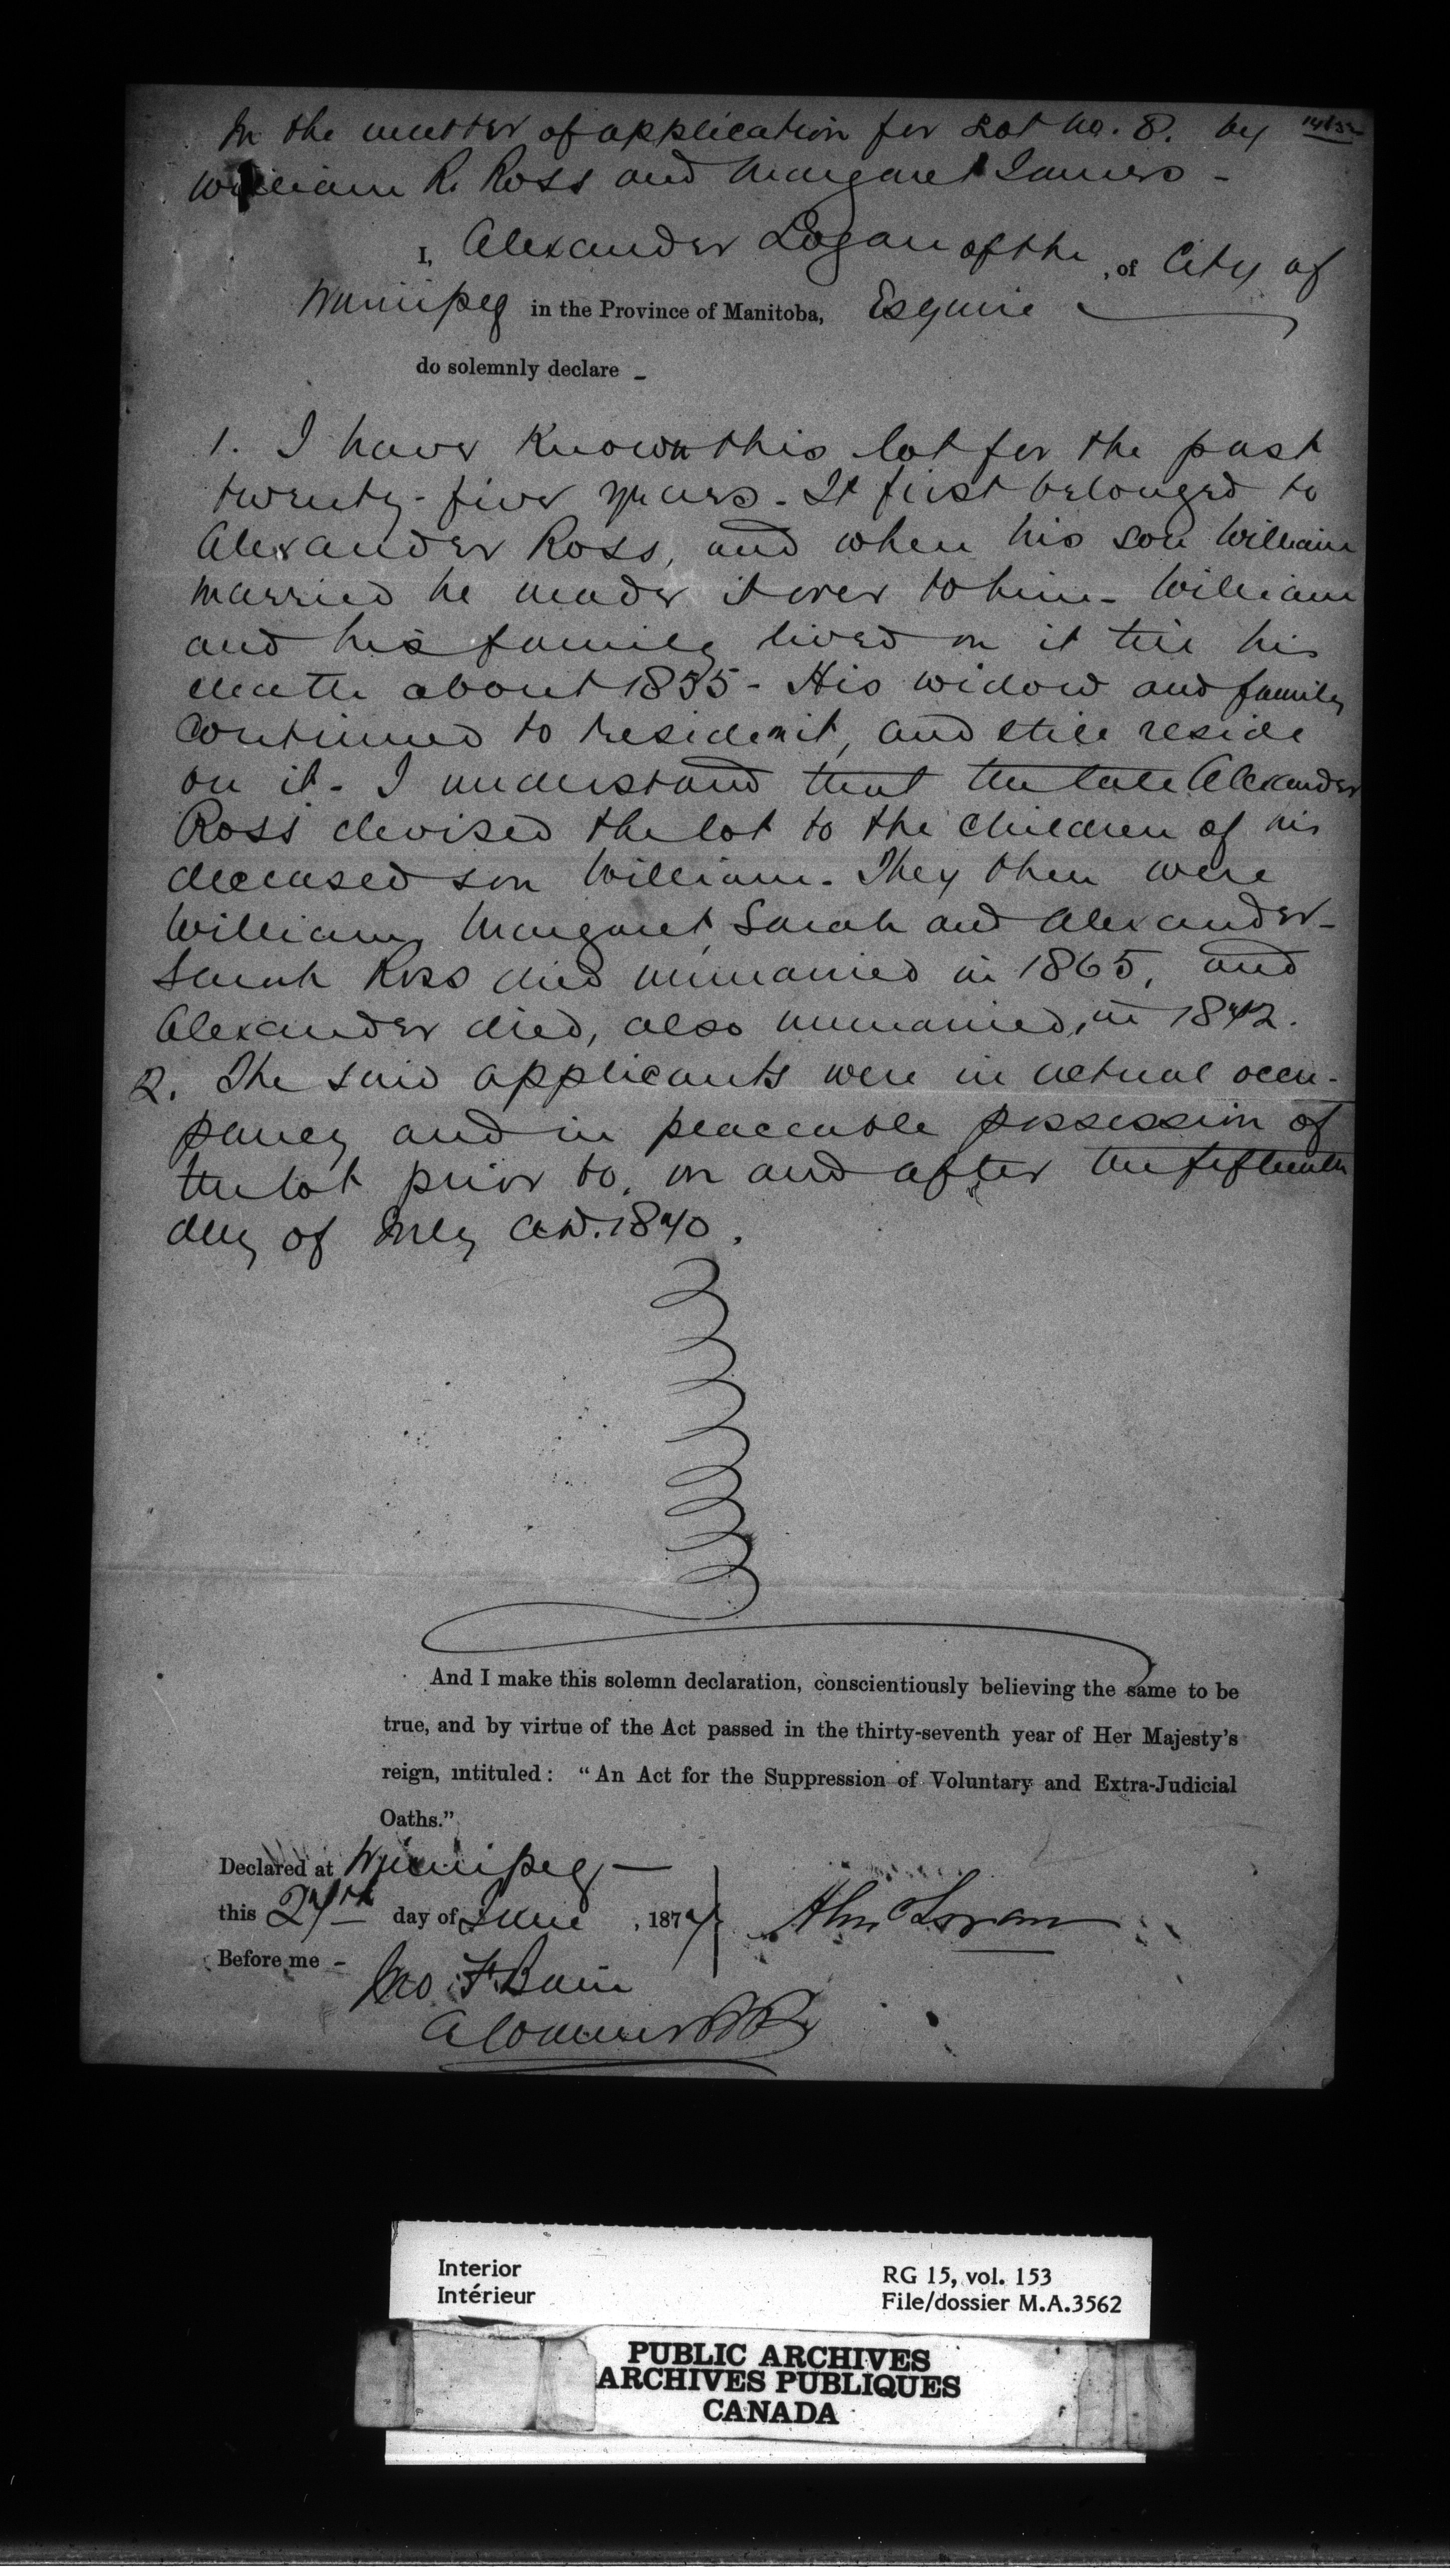 In the matter of application for Lot No. 8. by
William R. Ross and Margaret James -
I, Alexander Logan of the , of City of
Winnipeg in the Province of Manitoba, Esquire
do solemnly declare -
1. I have known this lot for the past
twenty-five years - It first belonged to
Alexander Ross, and when his son William
married he made it over to him - William
and his family lived on it till his
death about 1855 - His widow and family
continued to reside on it, and still reside
on it - I understand that the late Alexander
Ross devised the lot to the children of his
deceased son William. They then were
William, Margaret, Sarah and Alexander -
Sarah Ross died unmarried in 1865, and
Alexander died, also unmarried, in 1872.
2. The said applicants were in actual occu-
pancy and in peaceable possession of
the lot prior to, on and after the fifteenth
day of July A.D. 1870.
And I make this solemn declaration, conscientiously believing the same to be
true, and by virtue of the Act passed in the thirty-seventh year of Her Majesty's
reign, intituled: "An Act for the Suppression of Voluntary and Extra-Judicial
Oaths."
Declared at Winnipeg -
this 27th day of June , 187
Before me -
Jno. F. Bain
A Commr BR
Interior
Intérieur
RG 15, vol. 153
File/dossier M.A.3562
PUBLIC ARCHIVES
ARCHIVES PUBLIQUES
CANADA